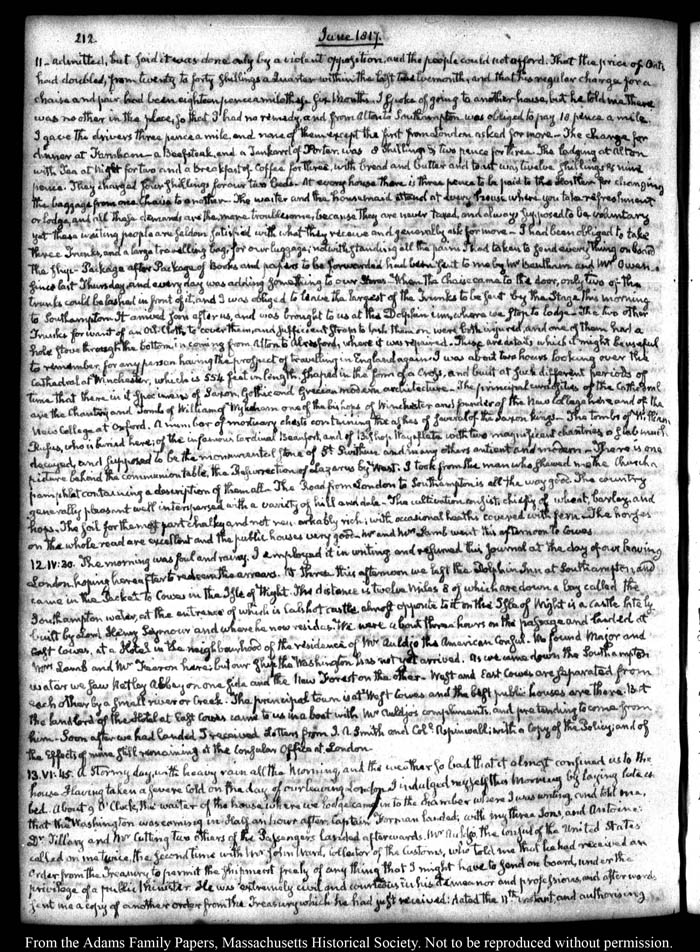 212
June 1817.
11— admitted, but said it was done only by a violent opposition, and the people could not afford. That the price of Oats
had doubled, from twenty to forty shillings a Quarter within the last twelvemonth, and that his regular charge for a
chaise and pair, had been eighteen pence a mile these six Months. I spoke of going to another house, but he told me there
was no other in the place, so that I had no remedy, and from Alton to Southampton was obliged to pay 18 pence a mile.
I gave the drivers three pence a mile, and none of them except the first from London asked for more— The charge for
dinner at Farnham— a Beefsteak, and a Tankard of Porter, was 8 Shillings & two pence for three. The lodging at Alton
with Tea at Night for two and a breakfast of Coffee for three, with bread and butter and toast was twelve shillings & nine
pence. They charged four shillings for our two beds. At every house there is three pence to be paid to the Hostler for changing
the baggage from one Chaise to another. The waiter and the housemaid attend at every house where you take refreshment
or lodge, and all these demands are the more troublesome, because they are never taxed, and always supposed to be voluntary
yet these waiting people are seldom satisfied with what they receive and generally ask for more— I had been obliged to take
three Trunks, and a large travelling bag, for our luggage; notwithstanding all the pains I had taken to send every thing on board
the Ship— Package after Package of Books and papers to be forwarded had been sent to me by Mr Bentham and Mr Owen
since last Thursday, and every day was adding something to our stores— When the Chaise came to the door, only two of the
trunks could be lashed in front of it, and I was obliged to leave the largest of the Trunks to be sent by the Stage this morning
to Southampton. It arrived soon after us, and was brought to us at the Dolphin Inn, where we stop to lodge— The two other
Trunks for want of an Oil-Cloth to cover them, and sufficient straps to lash them on were both injured, and one of them had a
hole stove through the bottom, in coming from Alton to Alresford, where it was repaired— These are details which it might be useful
to remember for any person having the prospect of travelling in England again. I was about two hours looking over the
Cathedral of Winchester, which is 554 feet in length, shaped in the form of a Cross, and built at such different periods of
time that there is of Specimens of Saxon, Gothic and Grecian modern architecture— The principal curiosities of the Cathedral
are the Chantry and Tomb of William of Wykeham one of the bishops of Winchester and founder of the New College here and of the
New College at Oxford. A number of mortuary chests containing the ashes of several of the Saxon kings— The tombs of William
Rufus, who is buried here; of the infamous Cardinal Beaufort, and of Bishop Waynflete with two magnificent chantries a slab much
decayed, and supposed to be the monumental stone of St Swithin and many others antient and modern— There is one
picture behind the communion table, the Resurrection of Lazarus by West. I took from the man who showed me the Church a
pamphlet containing a description of them all— The Road from London to Southampton is all the way good. The country
generally pleasant well interspersed with a variety of hill and dale— The cultivation consists chiefly of wheat, barley, and
hops. The soil for the most part chalky and not remarkably rich; with occasional heaths covered with fern— The horses
on the whole road are excellent and the public houses very good— Mr and Mrs Lamb went this afternoon to Cowes.
12. IV:30. The morning was foul and rainy. I employed it in writing and resumed this journal at the day of our leaving
London hoping hereafter to redeem the arrears. At three this afternoon we left the Dolphin Inn at Southampton, and
came in the Packet to Cowes in the Isle of Wight. The distance is twelve Miles 8 of which are down a bay called the
Southampton water, at the entrance of which is Calshot castle, almost opposite to it on the Isle of Wight is a castle lately
built by Lord Henry Seymour and where he now resides. We were about three hours on the passage and landed at
East Cowes, at a Hotel in the neighbourhood of the residence of Mr Auldjo the American Consul. We found Major and
Mrs Lamb and Mr Fearon here; but our ship the Washington has not yet arrived. As we came down the Southampton
water we saw Netley Abbey on one side and the New Forest on the other— West and East Cowes are separated from
each other by a small river or Creek. The principal town is at West Cowes and the best public houses are there. But
the landlord of the Hotel at East Cowes came to us in a boat with Mr Auldjo's compliments, and pretending to come from
him. Soon after we had landed I received Letters from J. A. Smith and Coll. Aspinwall; with a copy of the Policy; and of
the Effects of mine still remaining at the Consular Office at London.
13. VI:45. A Stormy day, with heavy rain all the Morning, and the weather so bad that it almost confined us to the
house. Having taken a severe Cold on the day of our leaving London, I indulged myself this Morning by laying late in
bed. About 9 O'Clock, the waiter of the house where we lodge came in to the chamber where I was writing, and told me,
that the Washington was coming in. Half an hour after Captain Forman landed; with my three Sons, and Antoine.
Dr Tillary and Mr Cutting two others of the Passengers landed afterwards. Mr Auldjo, the Consul of the United States
called on me twice, the second time with Mr John Ward, collector of the Customs, who told me that he had received an
order from the Treasury to permit the shipment freely of any thing that I might have to send on board, under the
privilege of a public Minister. He was extremely civil and courteous in his demeanor and professions, and afterwards
sent me a copy of another order from the Treasury which he had just received: dated the 11th instant, and authorising
From the Adams Family Papers, Massachusetts Historical Society. Not to be reproduced without permission.